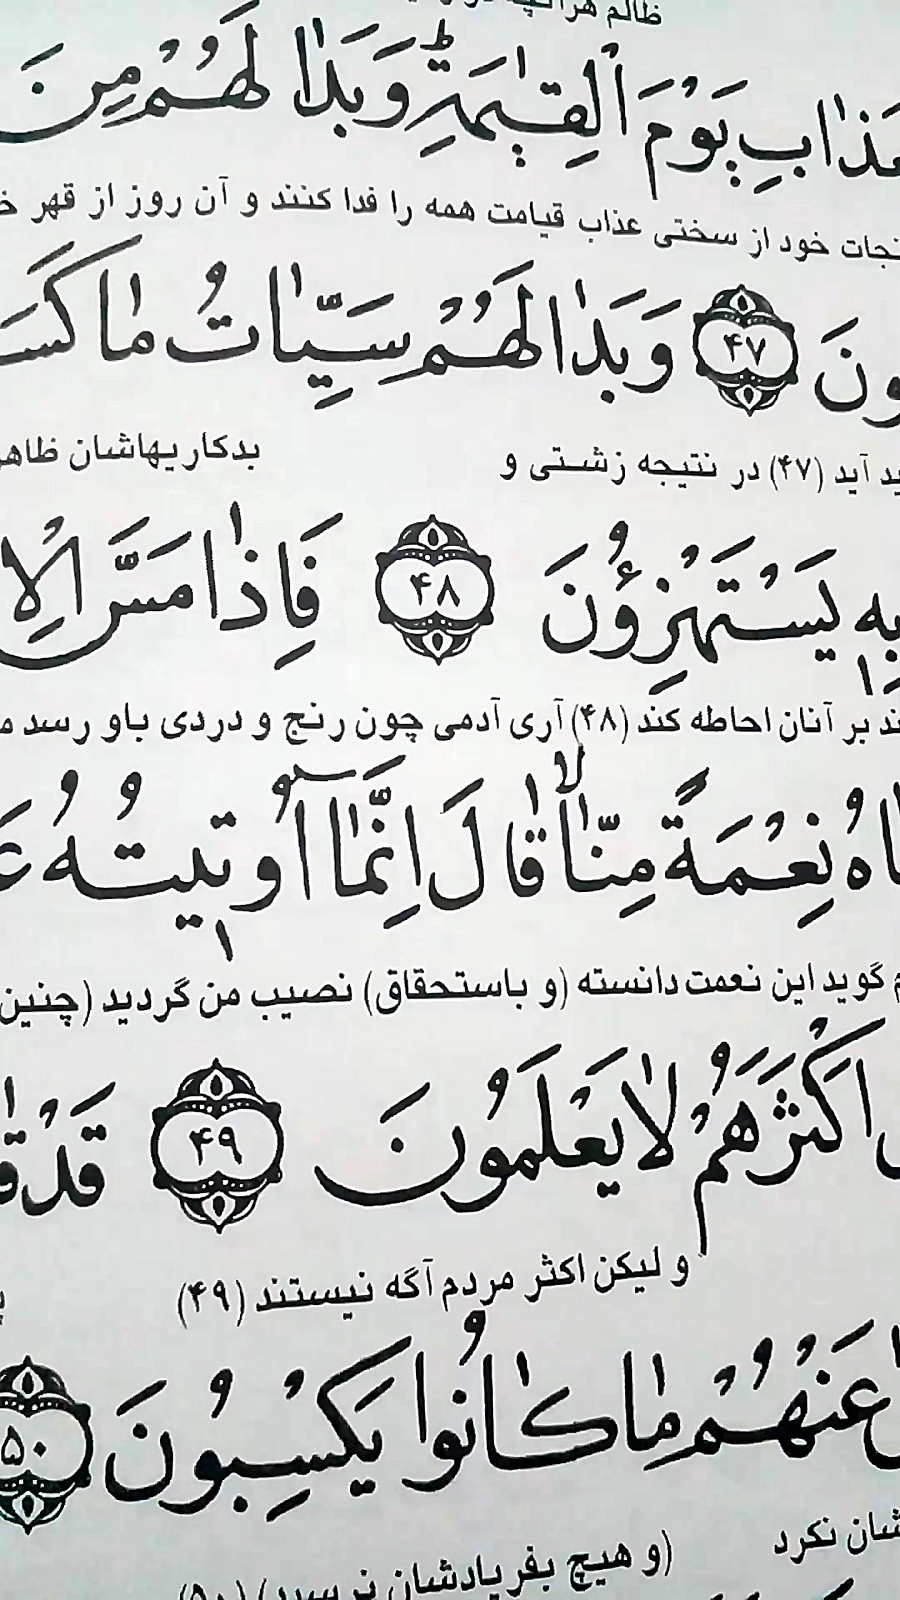 ظالم هر آنچه در
عَذٰابِ يَوْمَ الْقِيٰمَةِ وَبَدٰا لَهُمْ مِنَ
نجات خود از سختی عذاب قیامت همه را فدا کنند و آن روز از قهر
ونَ ﴿۴۷﴾ وَبَدٰا لَهُمْ سَيِّاٰتُ مٰا كَسَ
ید آید (۴۷) در نتیجه زشتی و بدکاریهاشان ظاهر
بِهِ يَسْتَهْزِؤُنَ ﴿۴۸﴾ فَاِذٰا مَسَّ الْاِ
ند بر آنان احاطه کند (۴۸) آری آدمی چون رنج و دردی باو رسد
اهُ نِعْمَةً مِنّٰا قٰالَ اِنَّمٰا اُوتيتُهُ عَ
گوید این نعمت دانسته (و باستحقاق) نصیب من گردید (چنین
اَكْثَرَهُمْ لٰا يَعْلَمُونَ ﴿۴۹﴾ قَدْ قٰا
و لیکن اکثر مردم آگه نیستند (۴۹)
عَنْهُمْ مٰا كٰانُوا يَكْسِبُونَ ﴿۵۰﴾
شان نکرد (و هیچ بفریادشان نرسید) (۵۰)